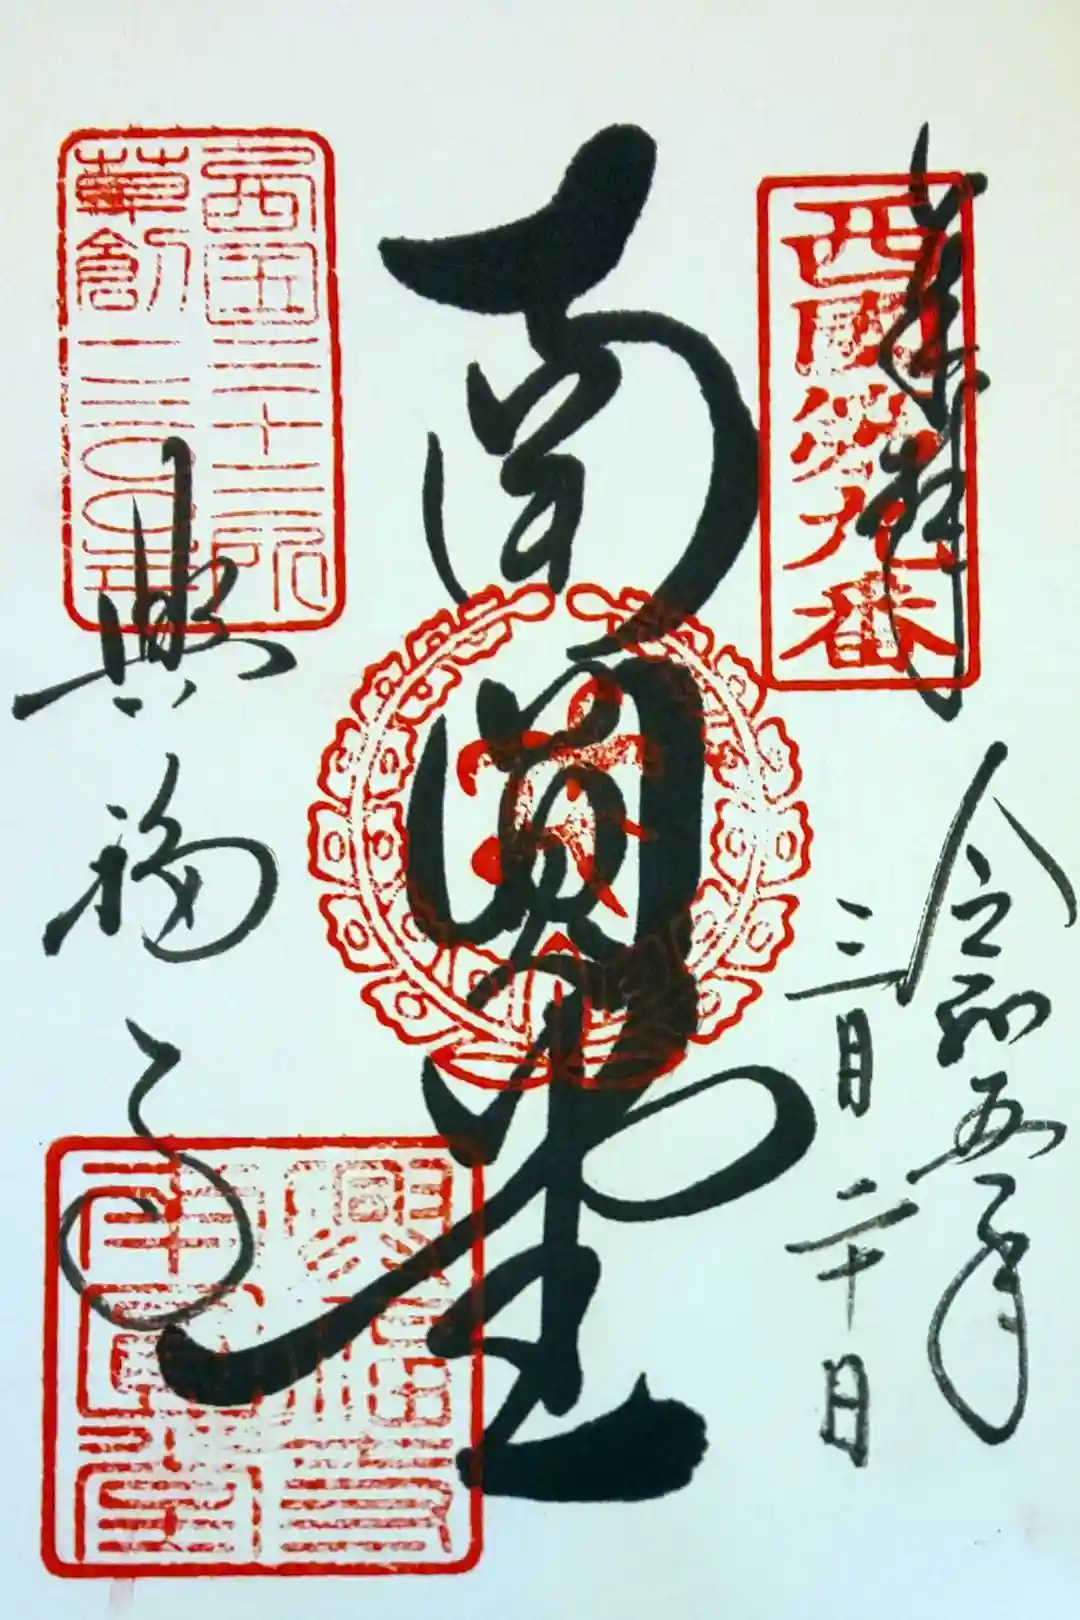 奉拝
令和五年
三月二十日
西國第九番
南圓堂
西国三十三所
草創一三〇〇年
興福寺
興福寺
南圓堂